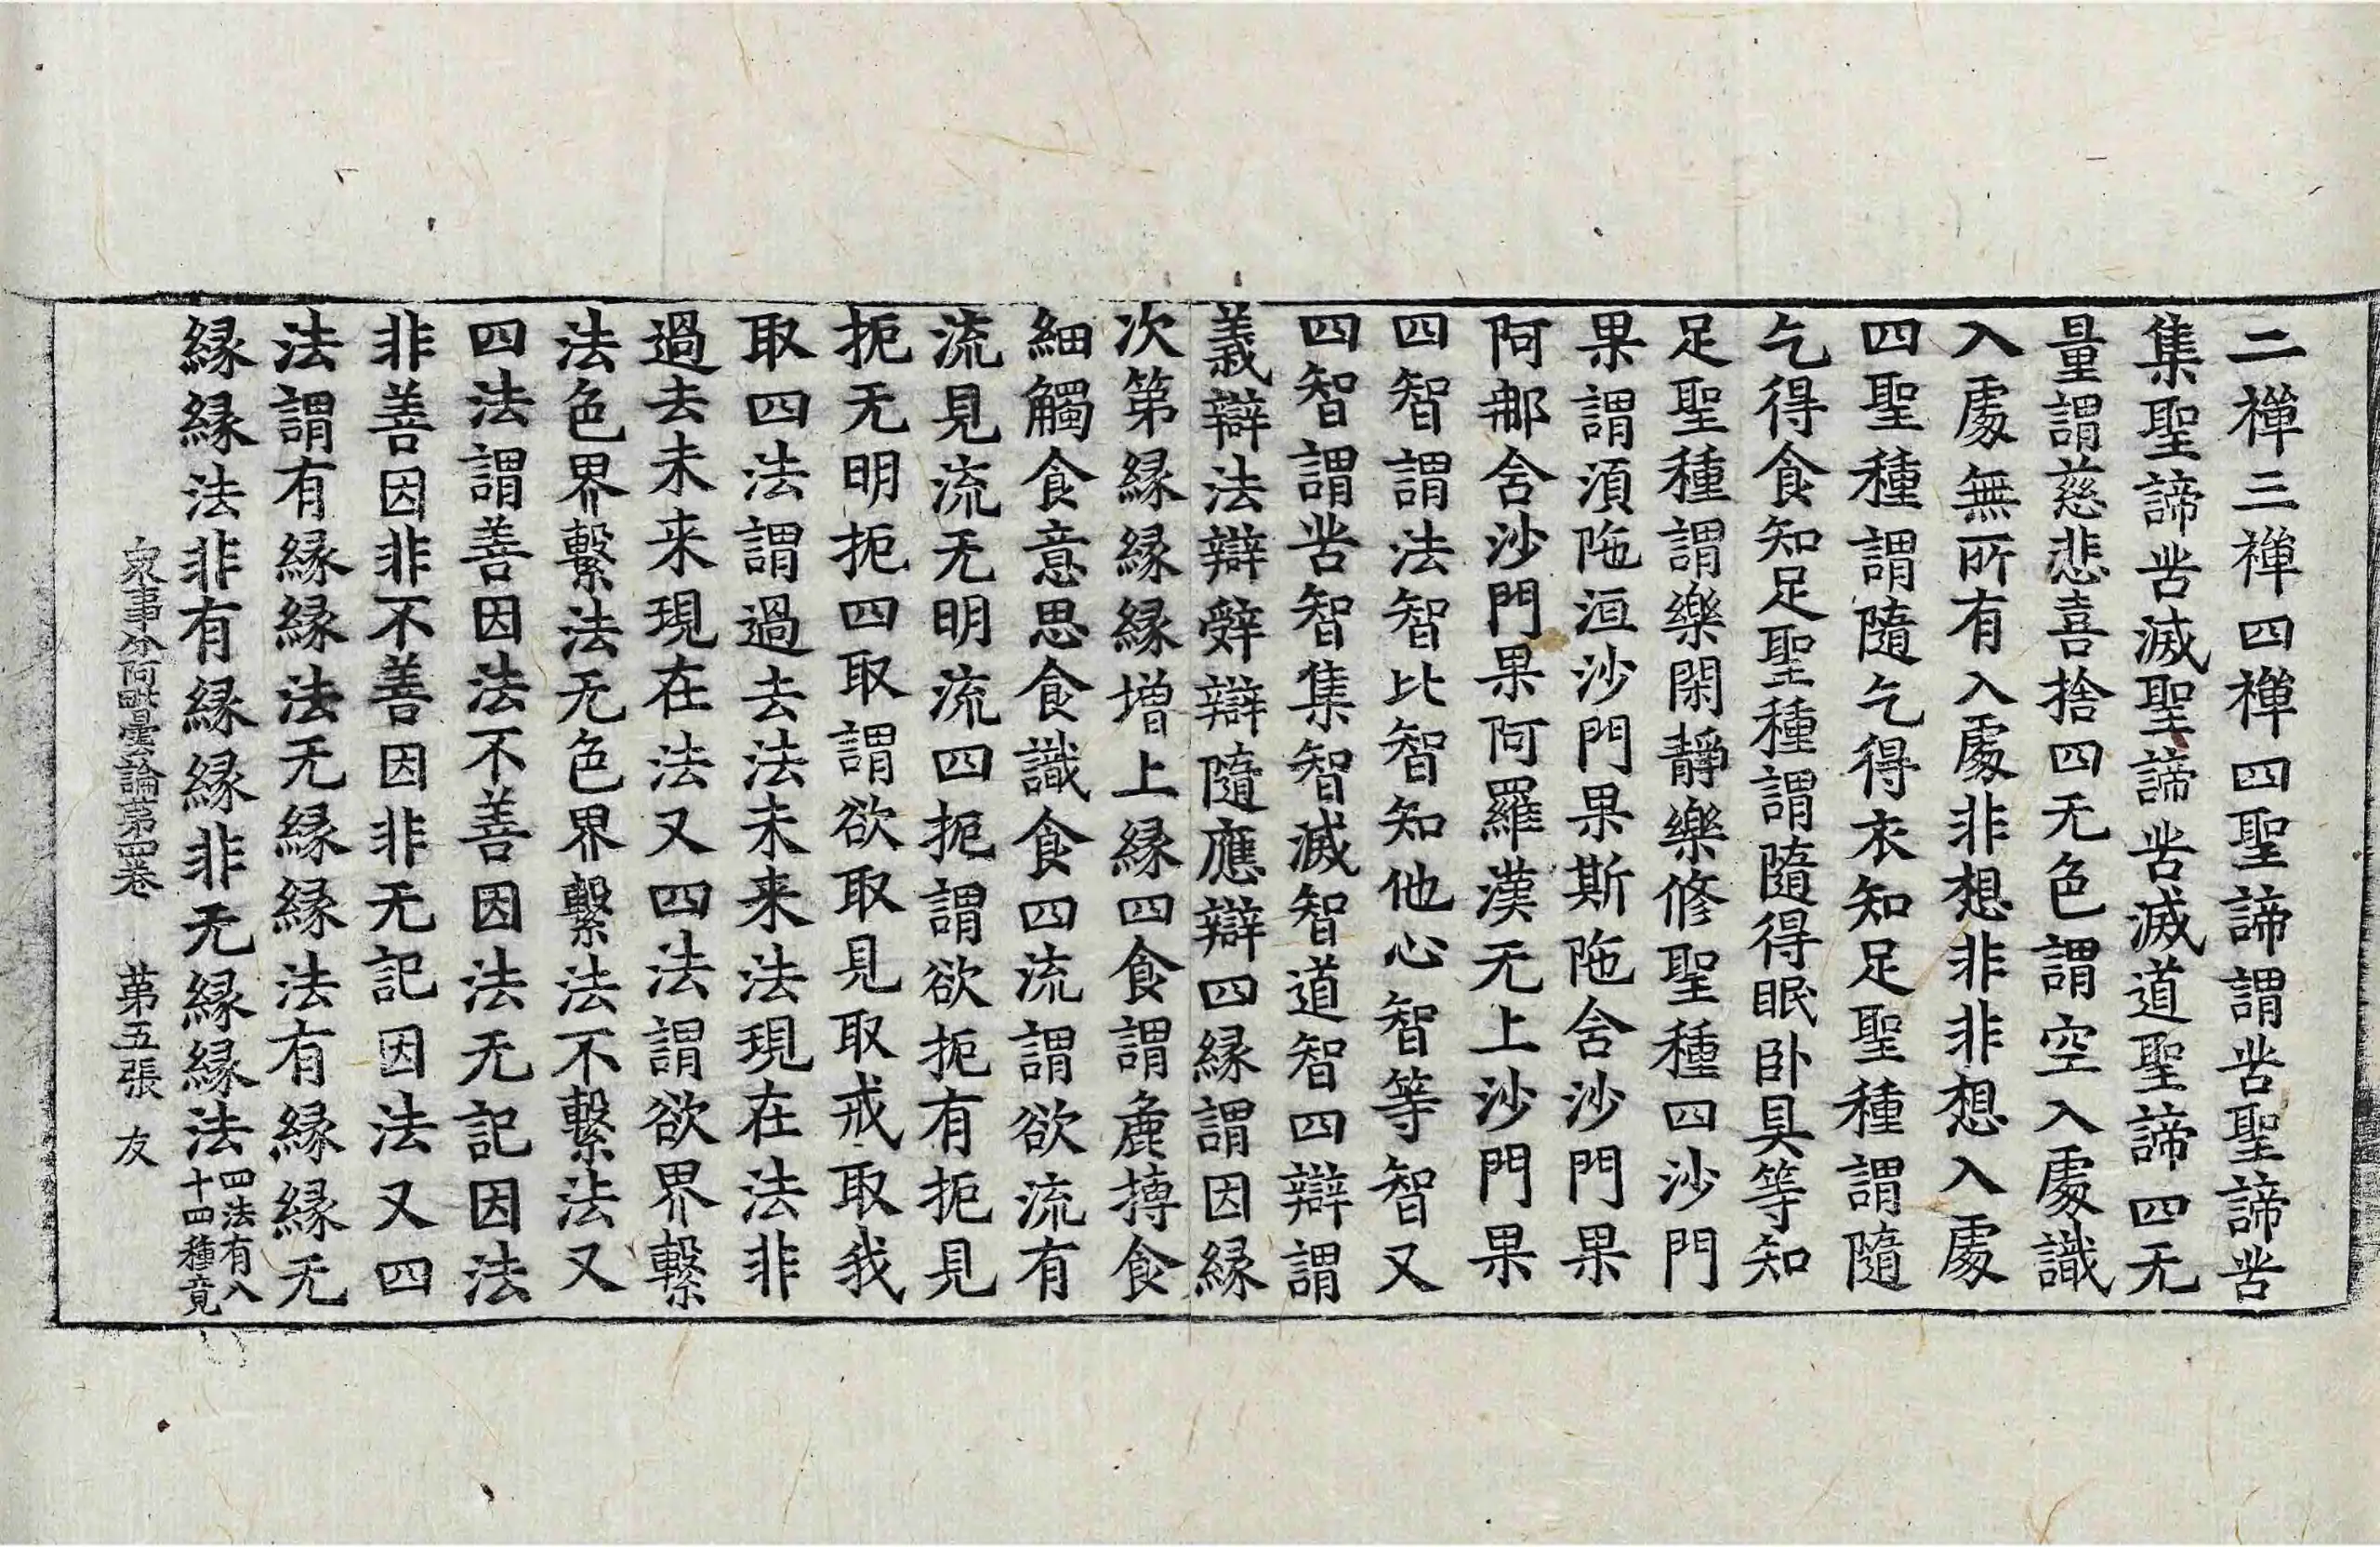 二禪三禪四禪四聖諦謂苦聖諦苦
集聖諦苦滅聖諦苦滅道聖諦四无
量謂慈悲喜捨四无色謂空入處識
入處無所有入處非想非非想入處
四聖種謂隨乞得衣知足聖種謂隨
乞得食知足聖種謂隨得眠卧具等知
足聖種謂樂閑靜樂修聖種四沙門
果謂湏陁洹沙門果斯陁含沙門果
阿那含沙門果阿羅漢无上沙門果
四智謂法智比智知他心智等智又
四智謂苦智集智滅智道智四辯謂
義辯法辯辭辯隨應辯四緣謂因緣
次第緣緣緣增上緣四食謂麁摶食
細觸食意思食識食四流謂欲流有
流見流无明流四扼謂欲扼有扼見
扼无明扼四取謂欲取見取戒取我
取四法謂過去法未来法現在法非
過去未来現在法又四法謂欲界繫
法色界繫法无色界繫法不繫法又
四法謂善因法不善因法无記因法
非善因非不善因非无記因法又四
法謂有緣緣法无緣緣法有緣緣无
緣緣法非有緣緣非无緣緣法四法有八十四種竟
衆事分阿毗曇論第四卷 第五張 友